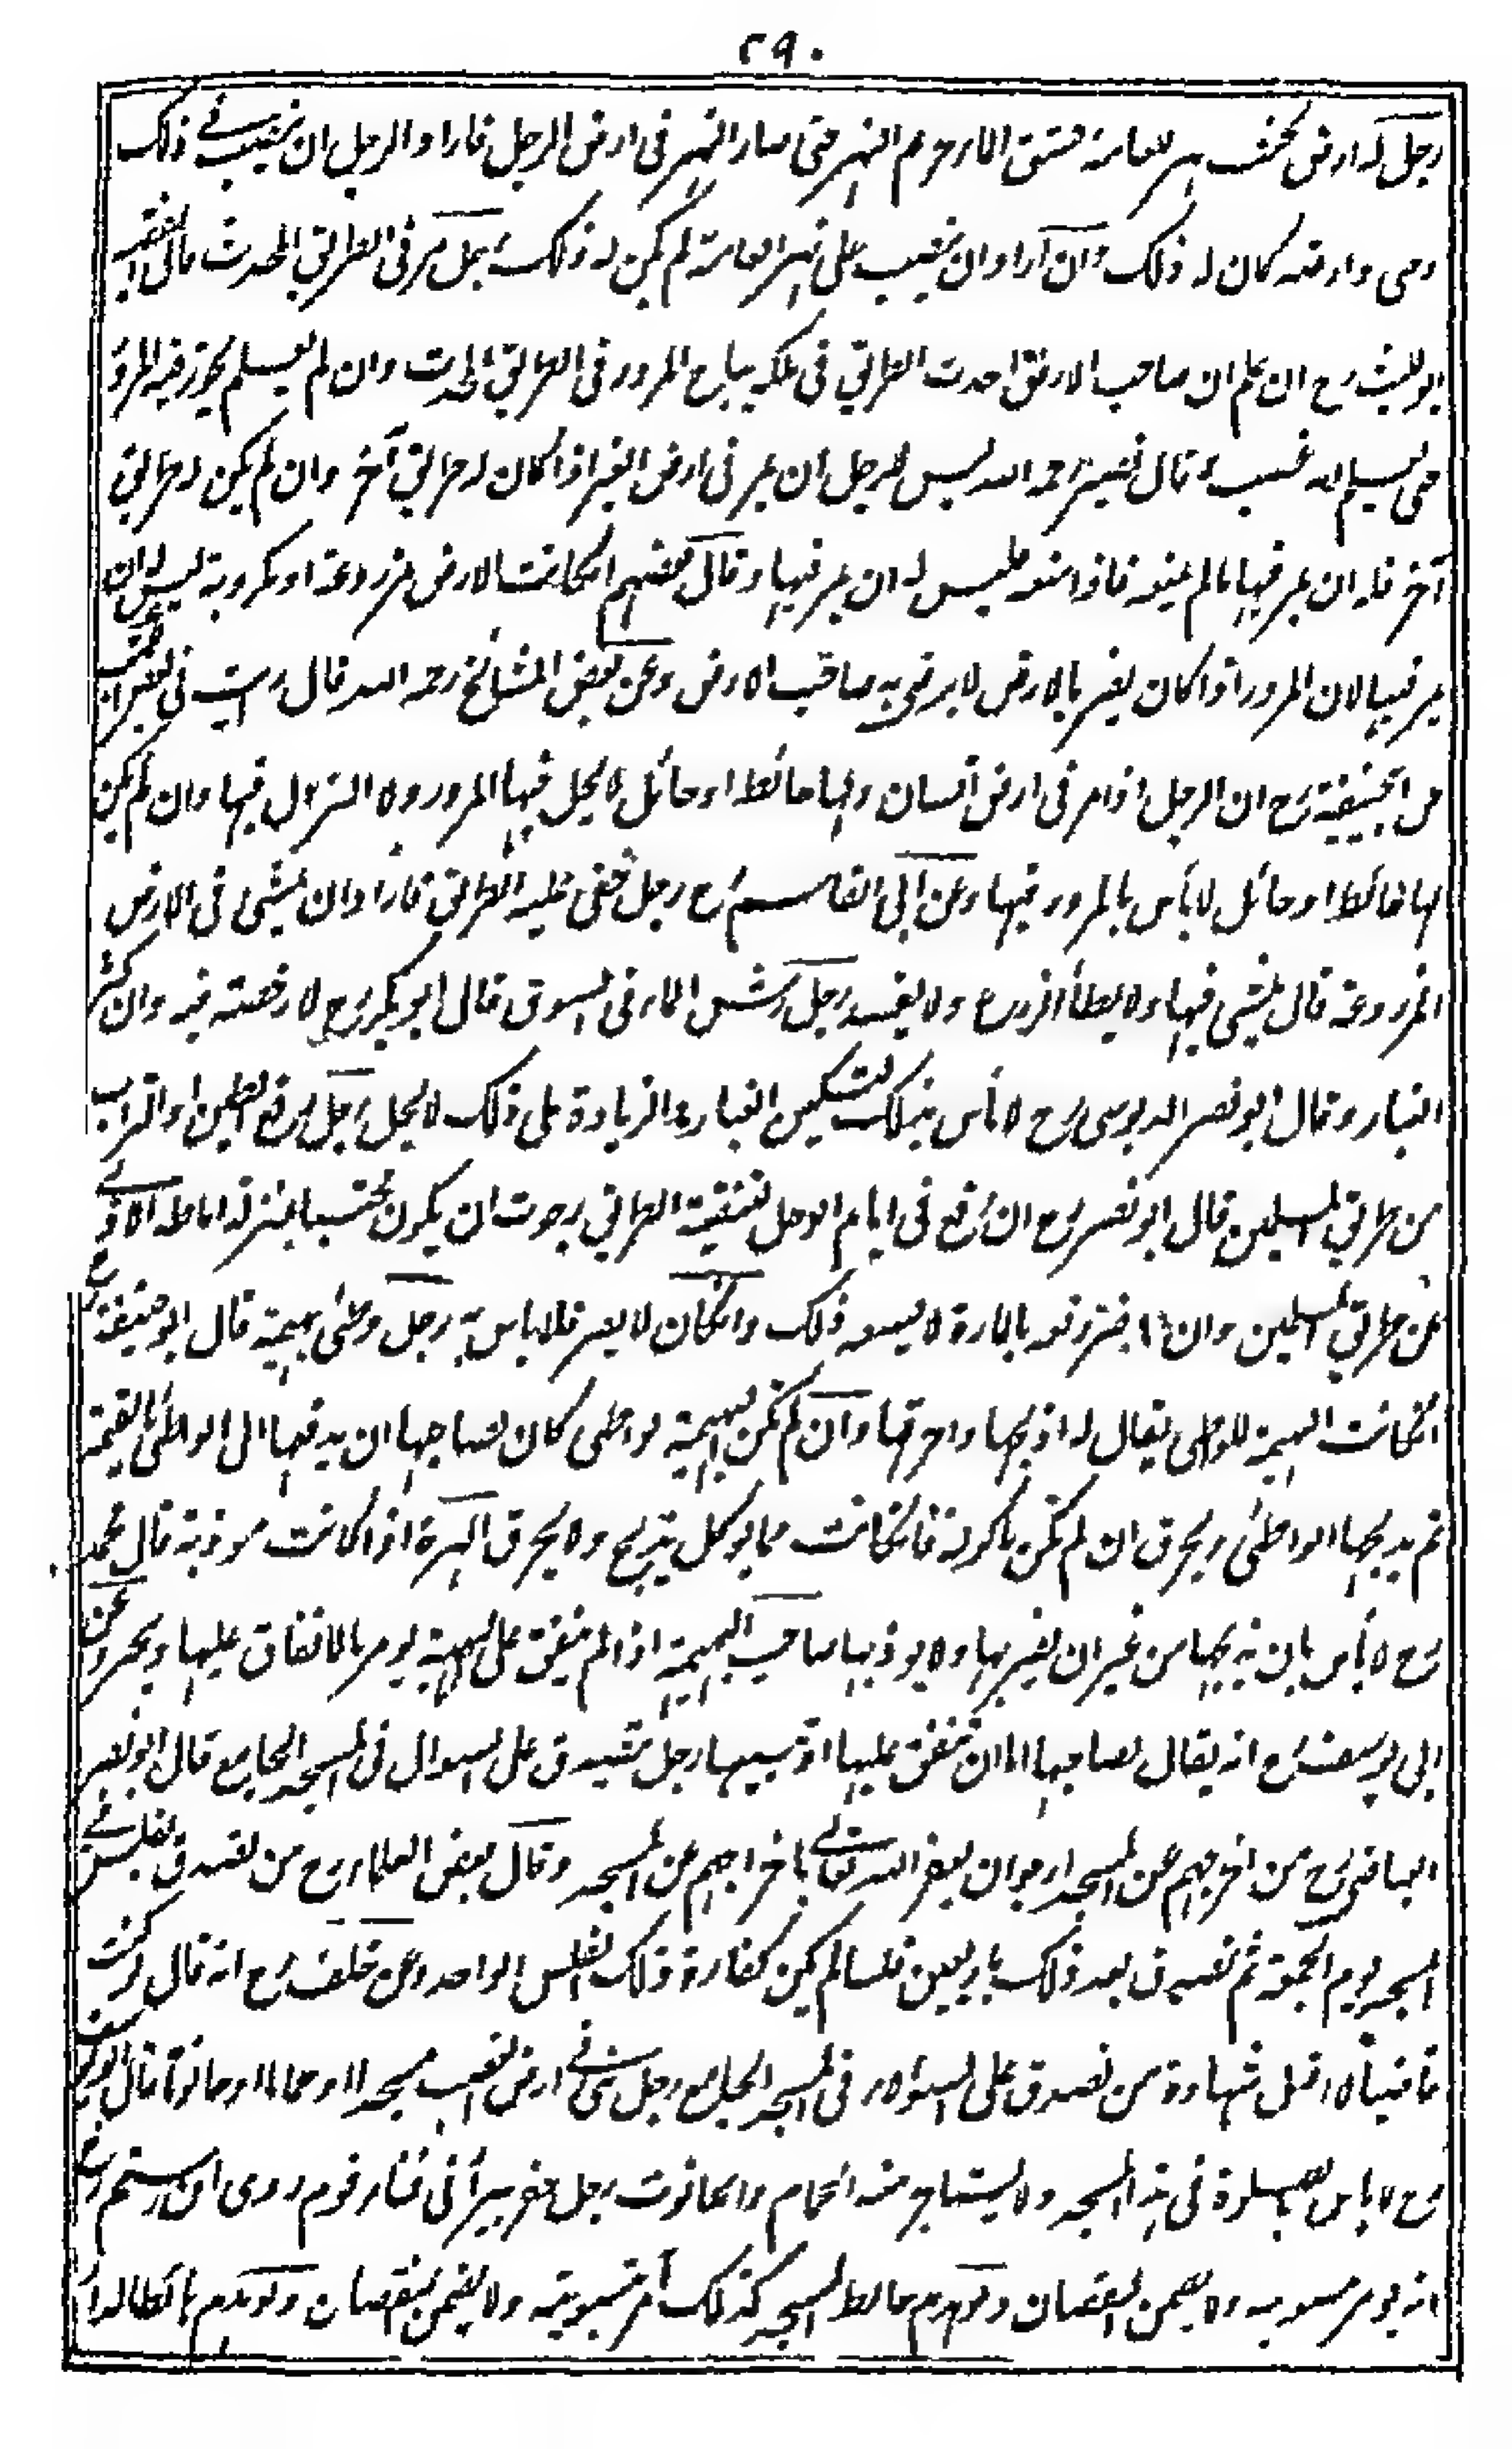 ٢٩٠
رجل له ارض بجنب نهر للعامة فشق الماء حريم النهر حتى صار النهر فى ارض الرجل فاراد الرجل ان ينصب فى ذلك
رحى وارضه كان له ذلك وان اراد ان ينصب على نهر العامة لم يكن له ذلك رجل مر فى الطريق المحدث قال الفقيه
ابو الليث رح ان علم ان صاحب الارض احدث الطريق فى ملكه يباح المرور فى الطريق المحدث وان لم يعلم يجوز فيه المرور
حتى يعلم انه غصب وقال نصير رحمه الله ليس للرجل ان يمر فى ارض الغير اذا كان له طريق آخر وان لم يكن له طريق
آخر فله ان يمر فيها ما لم يمنعه فاذا منعه فليس له ان يمر فيها وقال بعضهم انكانت الارض مزروعة او مكروبة ليس له ان
يمر فيها لان المرور اذا كان يضر بالارض لا يرضى به صاحب الارض وعن بعض المشائخ رحمه الله قال رأيت فى بعض الكتب
عن ابيحنيفة رح ان الرجل اذا مر فى ارض انسان ولها حائط او حائل لا يحل فيها المرور ولا النزول فيها وان لم يكن
لها حائط او حائل لا بأس بالمرور فيها وعن ابى القاسم رح رجل خفى عليه الطريق فاراد ان يمشى فى الارض
المزروعة قال يمشى فيها ولا يطأ الزرع ولا يفسد رجل رش الماء فى السوق قال ابو بكر رح لا رخصة فيه وان كثر
الغبار وقال ابو نصر الدبوسى رح لا بأس بذلك لتسكين الغبار والزيادة على ذلك لا يحل رجل رفع الطين او التراب
من طريق المسلمين قال ابو نصر رح ان رفع فى ايام الوحل لتنقية الطريق رجوت ان يكون محتسبا بمنزلة اماطة الاذى
عن طريق المسلمين وان اضر رفعه بالمارة لا يسعه ذلك وانكان لا يضر فلا باس به رجل وطئ بهيمة قال ابو حنيفة رح
انكانت البهيمة للواطى يقال له اذبحها واحرقها وان لم تكن البهيمة لواطى كان لصاحبها ان يدفعها الى الواطئ بالقيمة
ثم يذبحها الواطئ ويحرق ان لم تكن ماكولة فانكانت مما يوكل يذبح ولا يحرق الهرة اذا كانت موذية قال محمد
رح لا بأس بان يذبحها من غير ان يضربها ولا يوذيها صاحب البهيمة اذا لم ينفق على البهيمة يومر بالانفاق عليها ويجبر وعن
ابى يوسف رح انه يقال لصاحبها اما ان تنفق عليها او تبيعها رجل تصدق على السوال فى المسجد الجامع قال ابو نصر
العياضى رح من اخرجهم عن المسجد ارجو ان يغفر الله تعالى باخراجهم عن المسجد وقال بعض العلماء رح من تصدق بفلس فى
المسجد يوم الجمعة ثم تصدق بعد ذلك باربعين فلسا لم يكن كفارة ذلك الفلس الواحد وعن خلف رح انه قال لو كنت
قاضيا لا اقبل شهادة من تصدق على السوال فى المسجد الجامع رجل بنى فى ارض الغصب مسجدا او حماما او حانوتا قال ابو يوسف
رح لا باس بالصلوة فى هذا المسجد ولا يستاجر منه الحمام والحانوت رجل حفر بيرا فى فناء قوم روى ابن رستم رح
انه يومر بتسويته ولا يضمن النقصان ولو هدم حائط المسجد كذلك امر بتسويته ولا يضمن بنقصان ولو هدم حائطا لدار